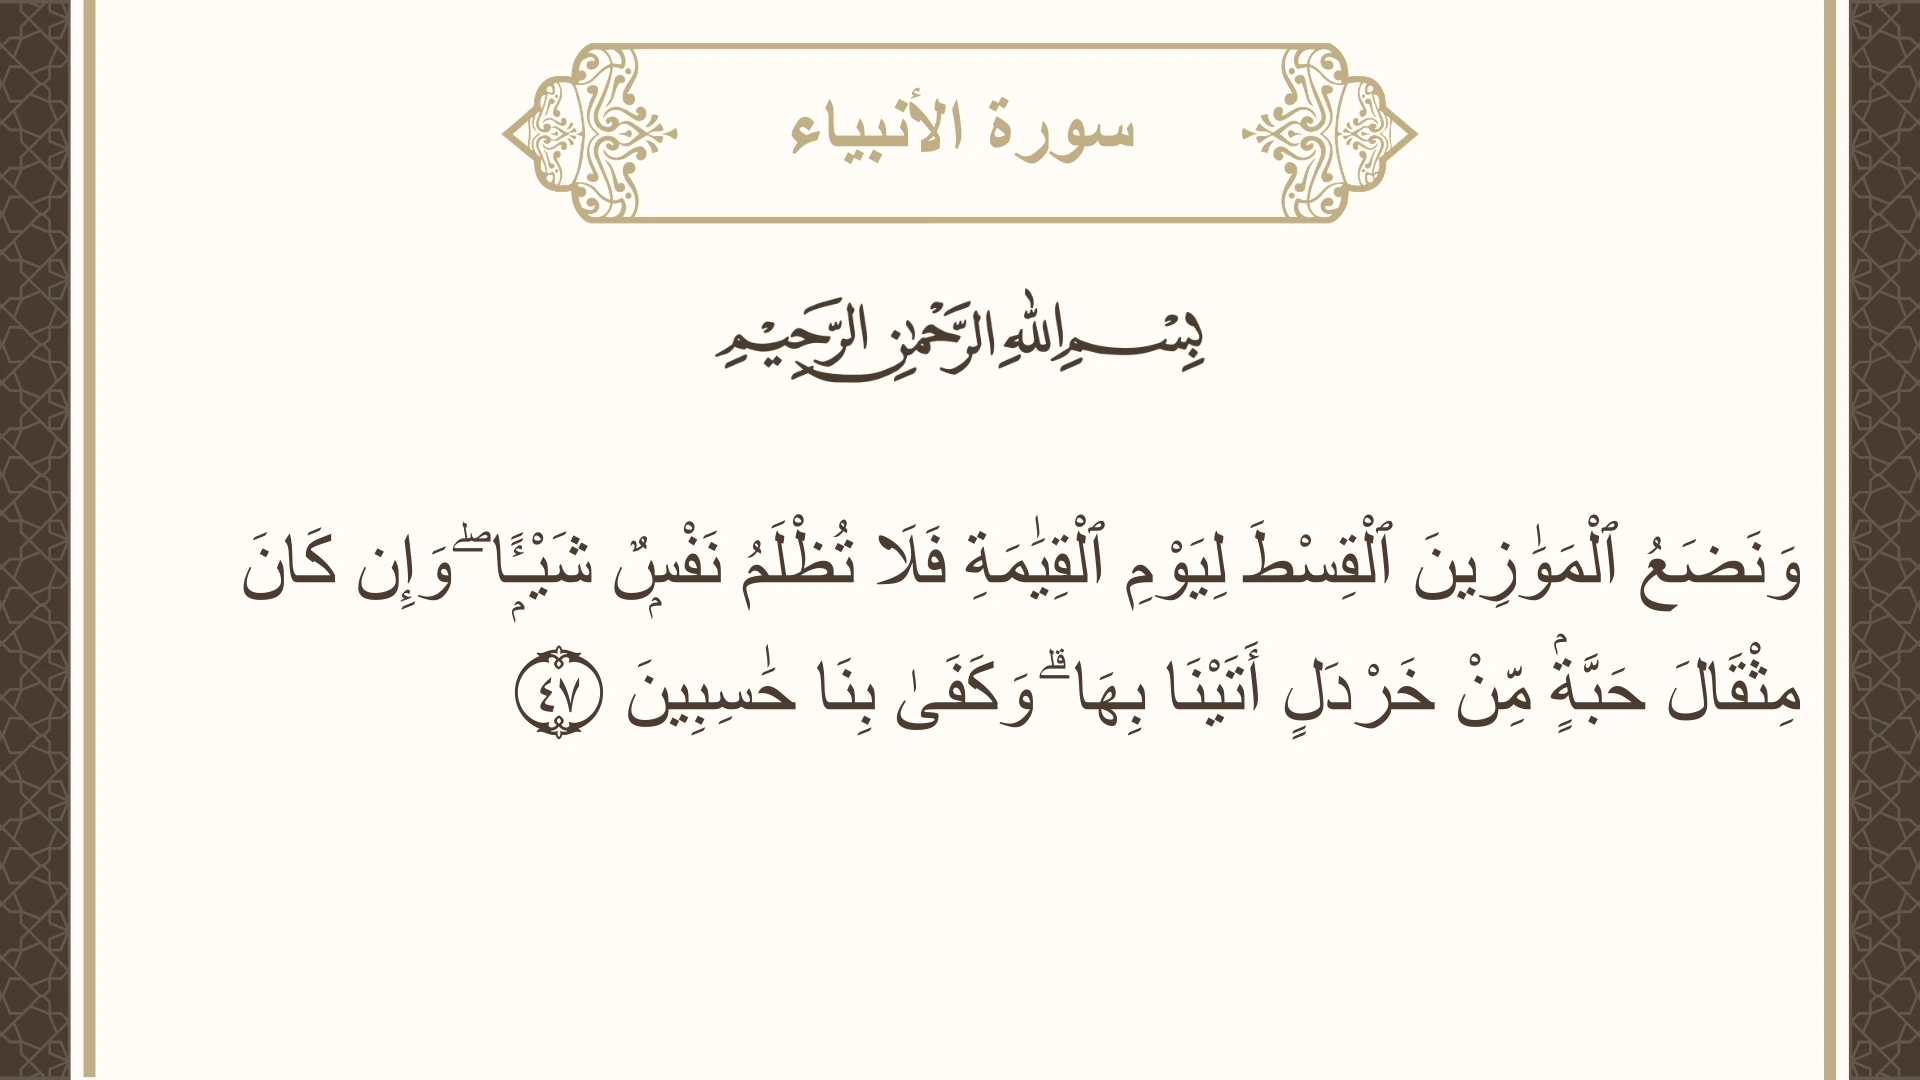 سورة الأنبياء
بِسْمِ اللهِ الرَّحْمٰنِ الرَّحِيْمِ
وَنَضَعُ ٱلْمَوَٰزِينَ ٱلْقِسْطَ لِيَوْمِ ٱلْقِيَٰمَةِ فَلَا تُظْلَمُ نَفْسٌۭ شَيْـًۭٔا ۖ وَإِن كَانَ
مِثْقَالَ حَبَّةٍۢ مِّنْ خَرْدَلٍ أَتَيْنَا بِهَا ۗ وَكَفَىٰ بِنَا حَٰسِبِينَ ٤٧